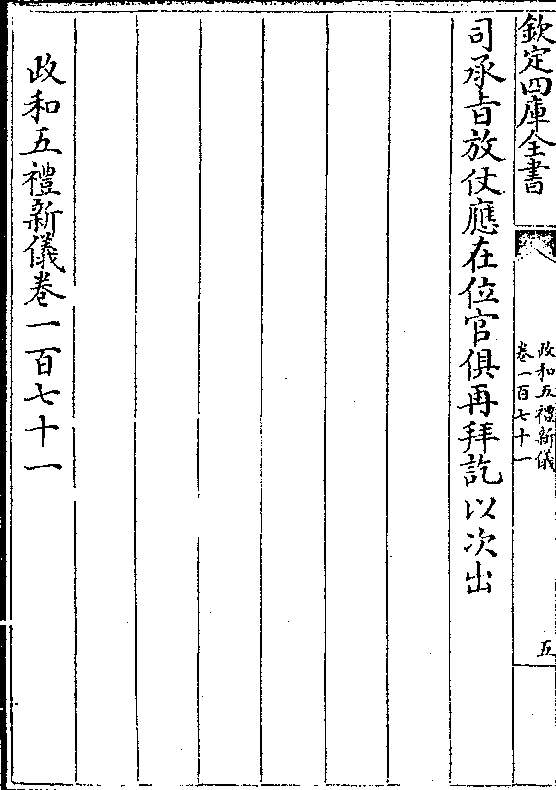 欽定四庫全書
政和五禮新儀
卷一百七十一
五
司承旨放仗應在位官俱再拜訖以次出
政和五禮新儀卷一百七十一